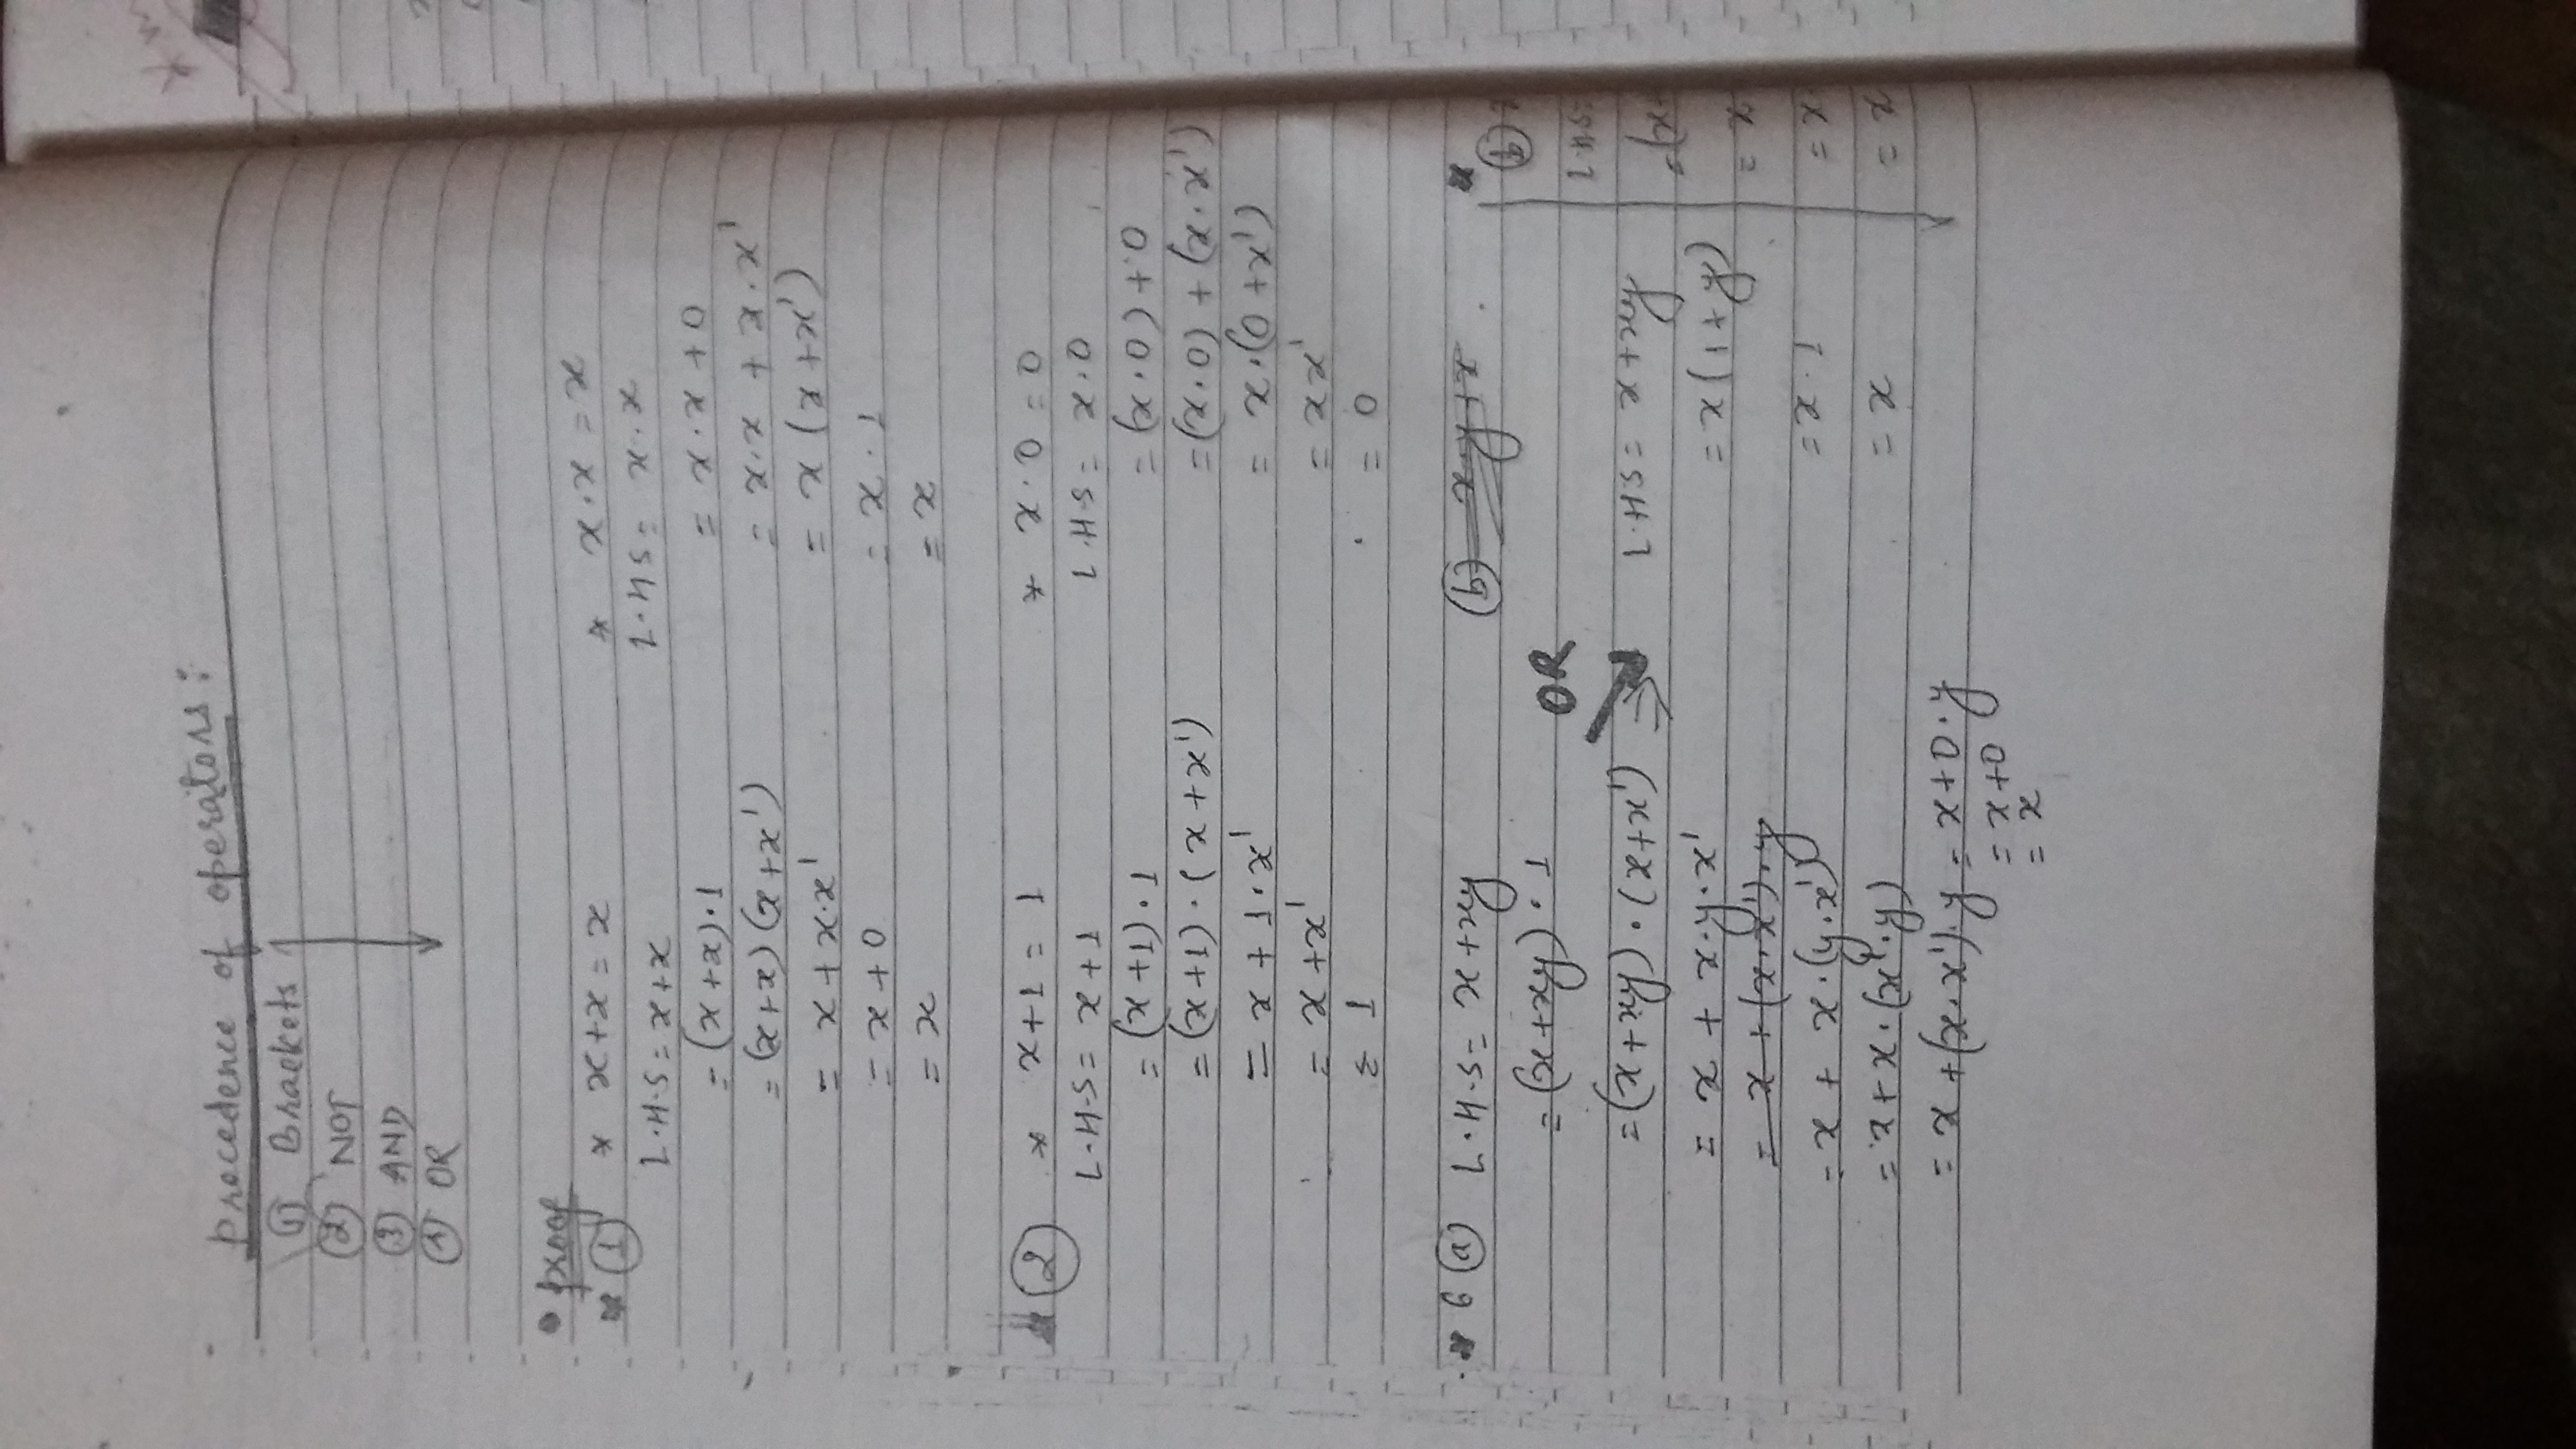 Precedence of operators:
① Brackets
② NOT
③ AND
④ OR
• proof
① * x+x = x
L.H.S = x+x
= (x+x).1
= (x+x)(x+x')
= x + x.x'
= x+0
= x
* x.x = x
L.HS = x.x
= x.x+0
= x.x + x.x'
= x(x+x')
= x.1
= x
② * x+1 = 1
L.H.S = x+1
= (x+1).1
= (x+1).(x+x')
= x + 1.x'
= x+x'
= 1
* x.0 = 0
L.H.S = x.0
= (x.0)+0
= (x.0)+(x.x')
= x.(0+x')
= xx'
= 0
6 ⓐ L.H.S = x+xy
= (x+xy).1
= (x+xy).(x+x')
= x + x.y.x'
= x+(x.x').y
= x + x.(y.x')
= x+x.(x'.y)
= x+(x.x').y = x+0.y
= x+0
= x
ⓑ x.y+x
OR
L.HS = x+xy
= x(1+y)
= x.1
= x
ⓑ
L.HS=
= (x+
= x
= x
= x